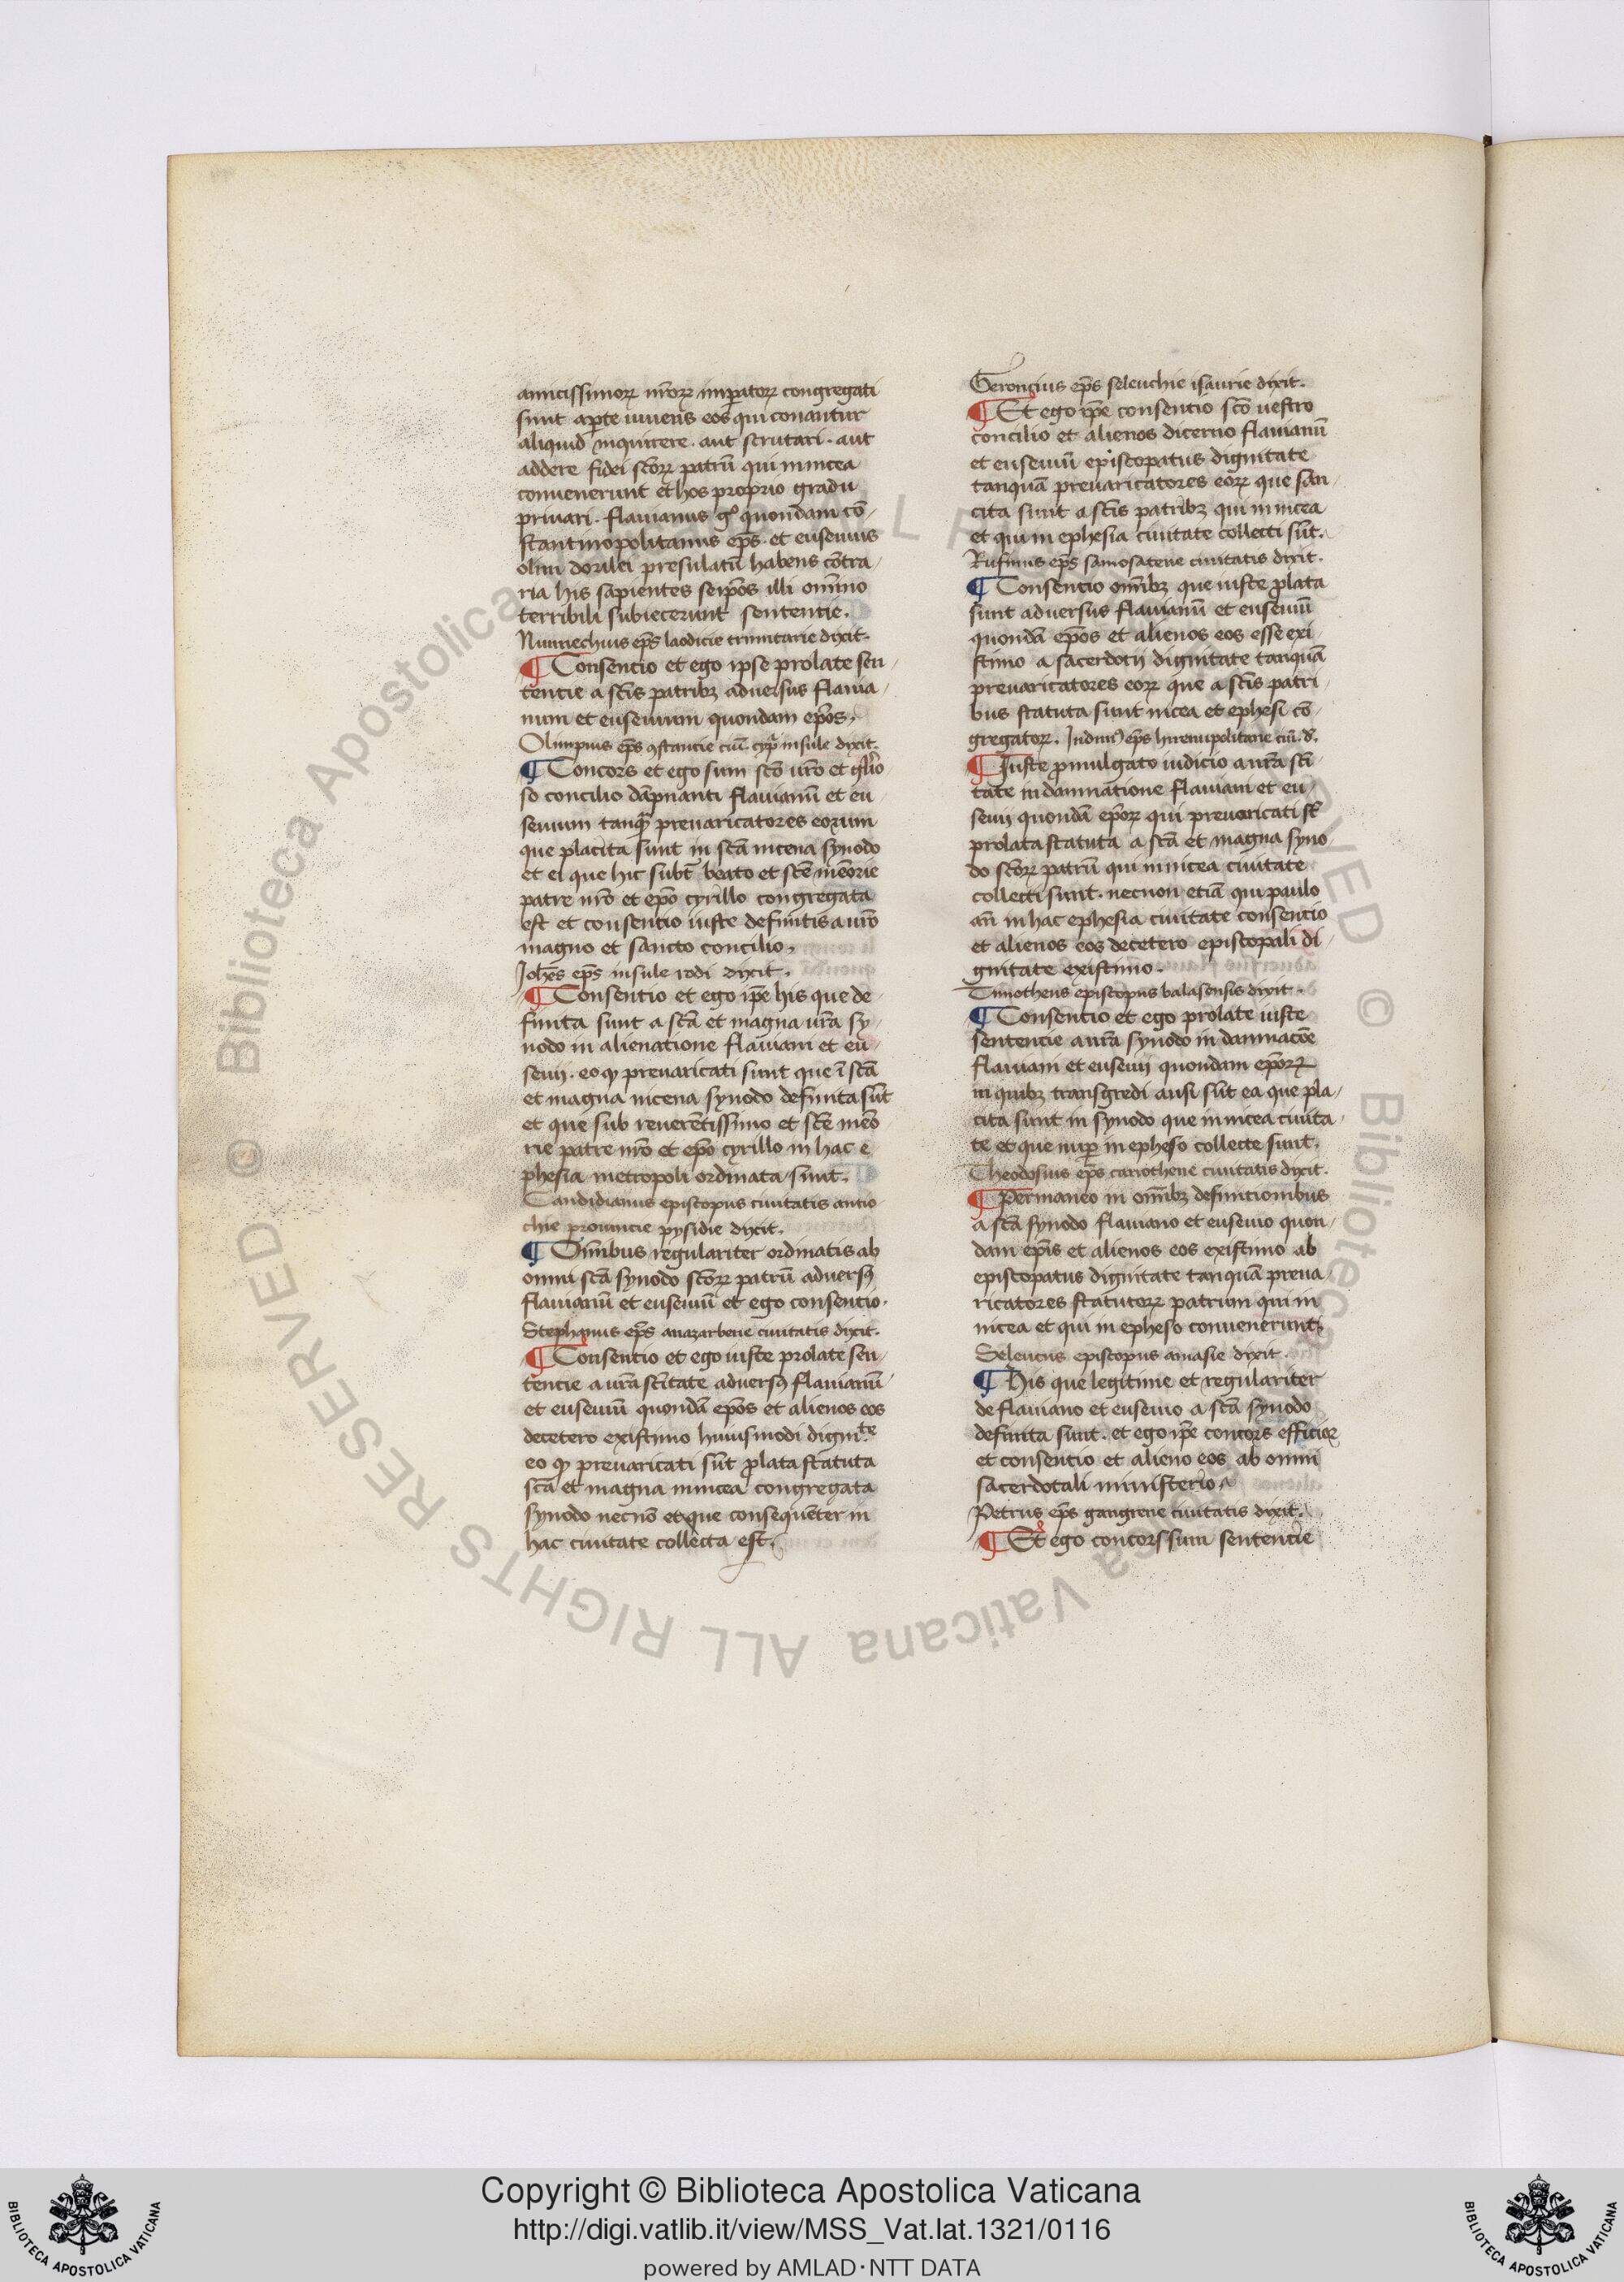 amicissimoꝝ nr̄oꝝ imꝑatoꝝ congregati
sunt aꝑte iuuens eos qui conantur
aliquid inquirere . aut scrutari . aut
addere fidei sc̄oꝝ patrū qui in nicea
conuenerunt et hos proprio gradu
priuari . flauianus gͦ quondam cō-
stantinopolitanus ep̄s . et euseuius
olim dorilei presulatū habens cōtra-
ria his sapientes seip̄os illi om̄ino
terribili subiecerunt sententie .
Nunnechius ep̄s laodicie trinitarie dixit .
¶ Consencio et ego ipse prolate sen-
tentie a sc̄is patribꝫ aduersus flauia-
num et euseuium quondam ep̄os .
Olimpius ep̄s ꝯstancie ciui . cyp̄ insule dixit .
¶ Concors et ego sum sc̄o ur̄o et gl̄io-
so concilio dāpnanti flauianū et eu-
seuium tanq̄ꝫ preuaricatores eorum
que placita sunt in sc̄a nicena synodo
et ei que hic sub t̄ beato et sc̄e mēorie
patre nr̄o et ep̄o cyrillo congregata
est et consencio iuste definitis a ur̄o
magno et sancto concilio .
Joh̄es ep̄s insule rodi dixit .
¶ Consentio et ego ip̄e his que de-
finita sunt a sc̄a et magna ur̄a sy-
nodo in alienatione flauiani et eu-
seuij . eo ꝙ preuaricati sunt que ī sc̄a
et magna nicena synodo definita sūt
et que sub reuerētissimo et sc̄e meō-
rie patre nr̄o et ep̄o cyrillo in hac e-
phesia metropoli ordinata sunt .
Candidianus episcopus ciuitatis antio-
chie prouincie pysidie dixit .
¶ Om̄ibus regulariter ordinatis ab
omni sc̄a synodo sc̄oꝝ patrū aduersꝰ
flauianū et euseuiū et ego consentio .
Stephanus ep̄s anazarbene ciuitatis dixit .
¶ Consentio et ego iuste prolate sen-
tencie a ur̄a sc̄itate aduersꝰ flauianū
et euseuiū quondā ep̄os et alienos eos
decetero existimo huiusmodi dignite
eo ꝙ preuaricati sūt ꝓlata statuta
sc̄a et magna in nicea congregata
synodo necnō et que consequēter in
hac ciuitate collecta est .
Geroncius ep̄s seleuchie isaurie dixit .
¶ Et ego ip̄e consentio sc̄o uestro
concilio et alienos dicerno flauianū
et euseuiū episcopatus dignitate
tanquā preuaricatores eoꝝ que san-
cita sunt a sc̄is patribꝫ qui in nicea
et qui in ephesia ciuitate collecti sūt .
Rufinus ep̄s samosatene ciuitatis dixit .
¶ Consencio om̄ibꝫ que iuste ꝓlata
sunt aduersus flauianū et euseuiū
quondā ep̄os et alienos eos esse exi-
stimo a sacerdotij dignitate tanquā
preuaricatores eoꝝ que a sc̄is patri-
bus statuta sunt nicea et ephesi cō-
gregatoꝝ . Indimꝰ ep̄s hirenupolitane ciui . d .
¶ Iuste ꝓmulgato iudicio a nr̄a sc̄i-
tate in damnatione flauiani et eu-
seuij quondā ep̄oꝝ qui preuaricati st̄
prolata statuta a sc̄a et magna syno-
do sc̄oꝝ patrū qui in nicea ciuitate
collecti sunt . necnon etiā qui paulo
an̄ in hac ephesia ciuitate consencio
et alienos eos decetero episcopali di-
gnitate existimo .
Timotheus episcopus balasensis dixit .
¶ Consentio et ego prolate iuste
sentencie a nr̄a synodo in damnacōe
flauiani et euseuij quondam ep̄oꝝ
in quibꝫ transgredi ausi sūt ea que pla-
cita sunt in synodo que in nicea ciuita-
te et que nuꝑ in epheso collecte sunt .
Theodosius ep̄s canothene ciuitatis dixit .
¶ Permaneo in om̄ibꝫ definitionibus
a sc̄a synodo flauiano et euseuio quon-
dam ep̄is et alienos eos existimo ab
episcopatus dignitate tanquā preua-
ricatores statutoꝝ patrum qui in
nicea et qui in epheso conuenerunt .
Seleucus episcopus amasie dixit .
¶ His que legitime et regulariter
de flauiano et euseuio a sc̄a synodo
definita sunt . et ego ip̄e concors efficior
et consentio et alieno eos ab omni
sacerdotali ministerio .
Petrus ep̄s gangrene ciuitatis dixit .
¶ Et ego concors sum sentencie
Copyright © Biblioteca Apostolica Vaticana
http://digi.vatlib.it/view/MSS_Vat.lat.1321/0116
powered by AMLAD·NTT DATA